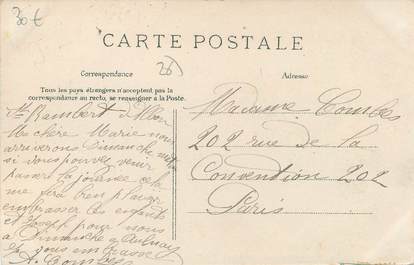 30€
26
CARTE POSTALE
Correspondance
Adresse
Tous les pays étrangers n'acceptent pas la
correspondance au recto, se renseigner à la Poste.
St Rambert d'Albon
Ma chère Marie nous
arriverons Dimanche
si vous pouvez venir
passer la journée cela
me fera bien plaisir
embrasser les enfants
et Joseph pour nous
a Dimanche
je vous embrasse
A. Combes
Madame Combes
202 rue de la
Convention 202
Paris